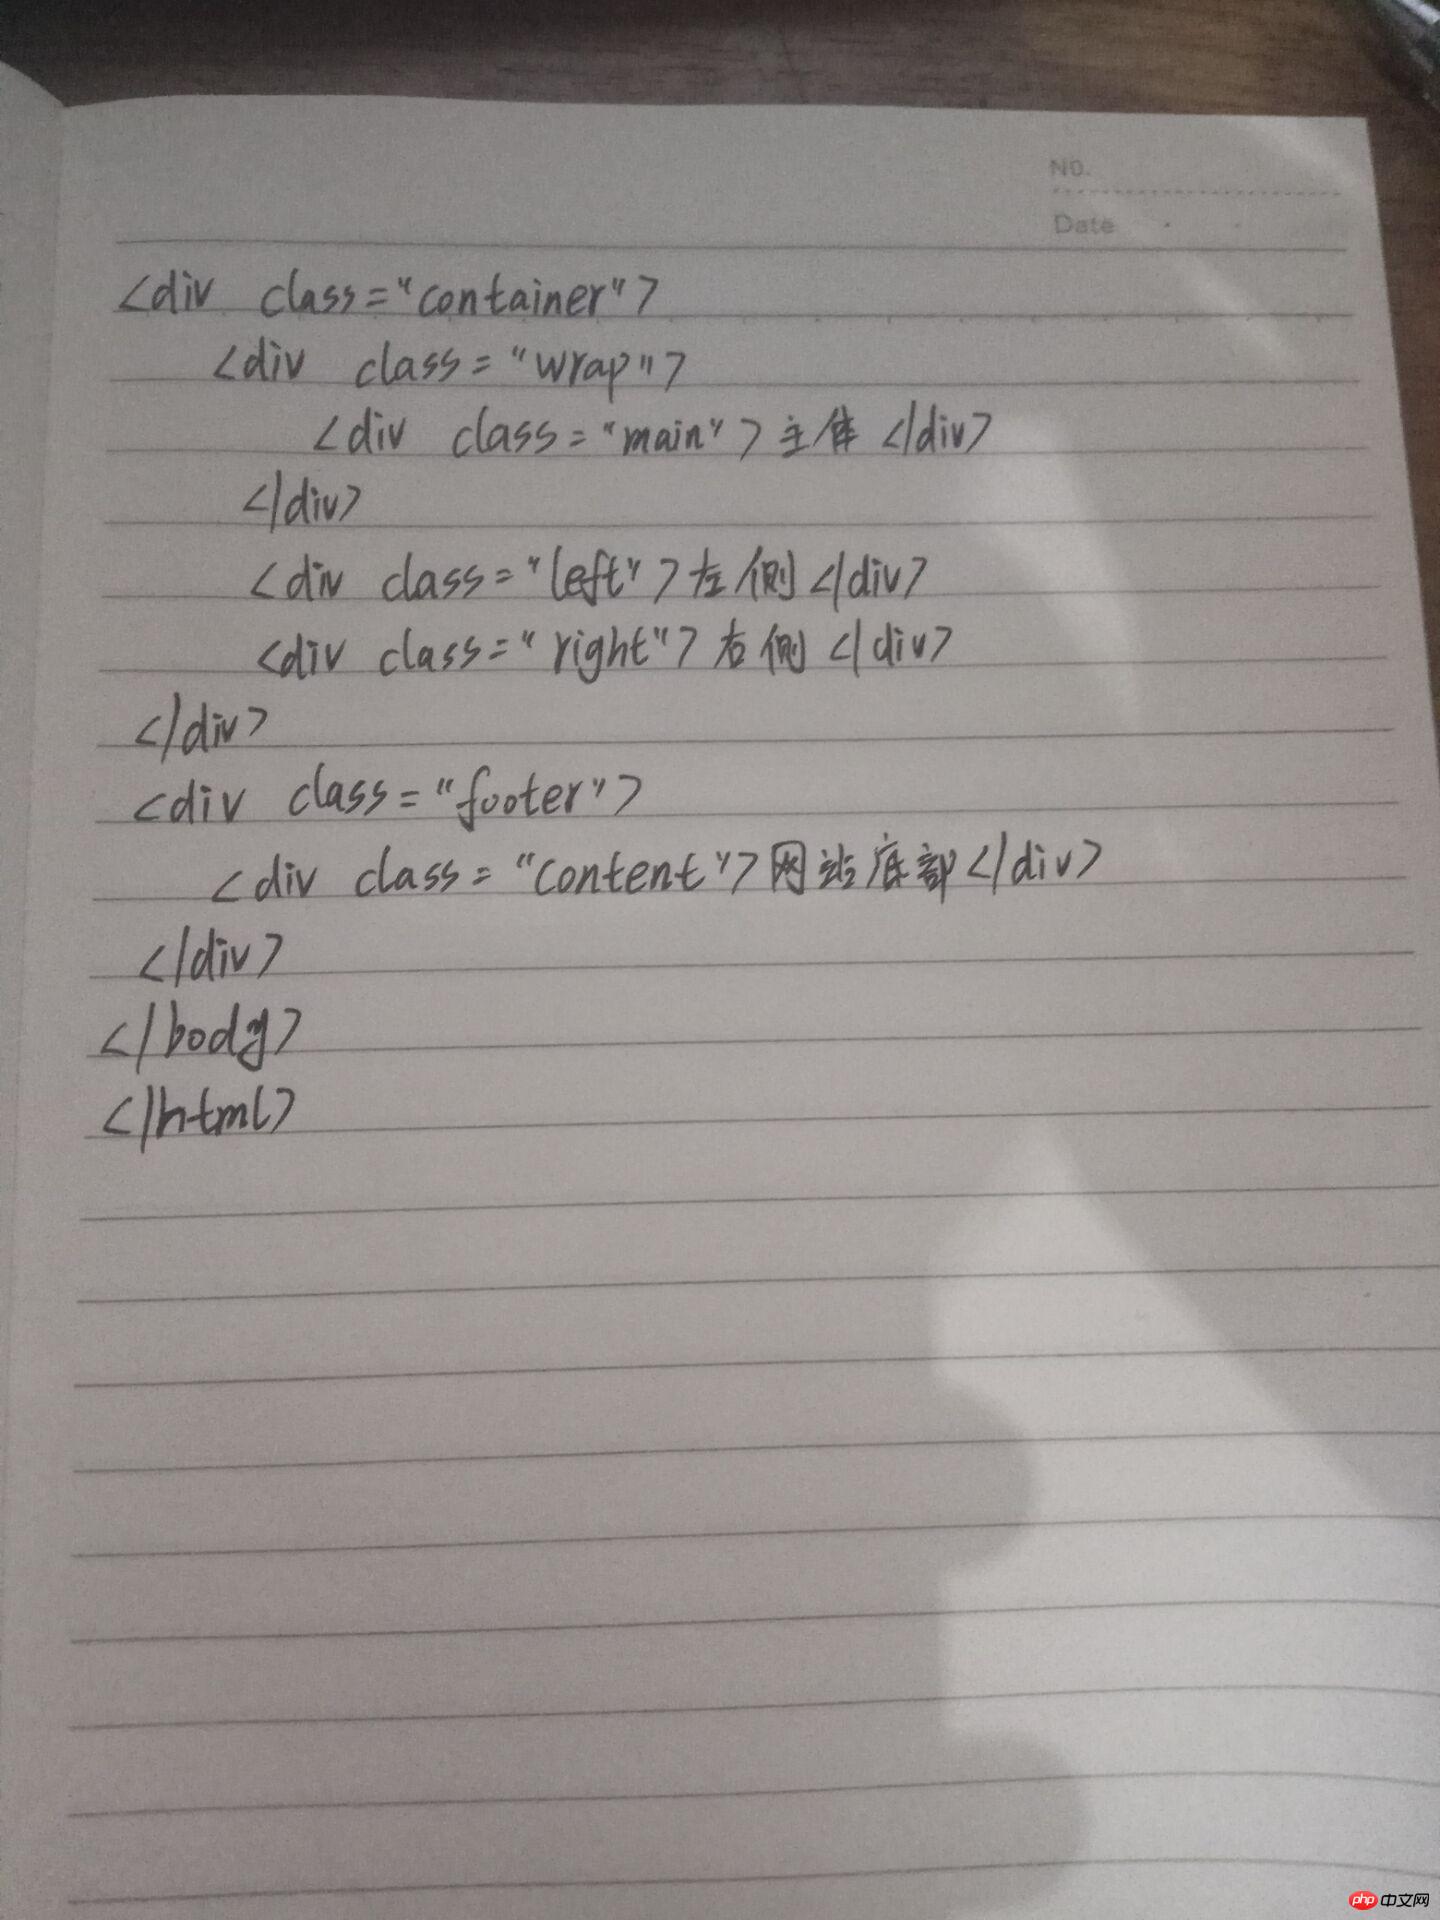 No.
Date
<div class="container">
<div class="wrap">
<div class="main">主体</div>
</div>
<div class="left">左侧</div>
<div class="right">右侧</div>
</div>
<div class="footer">
<div class="content">网站底部</div>
</div>
</body>
</html>
php 中文网